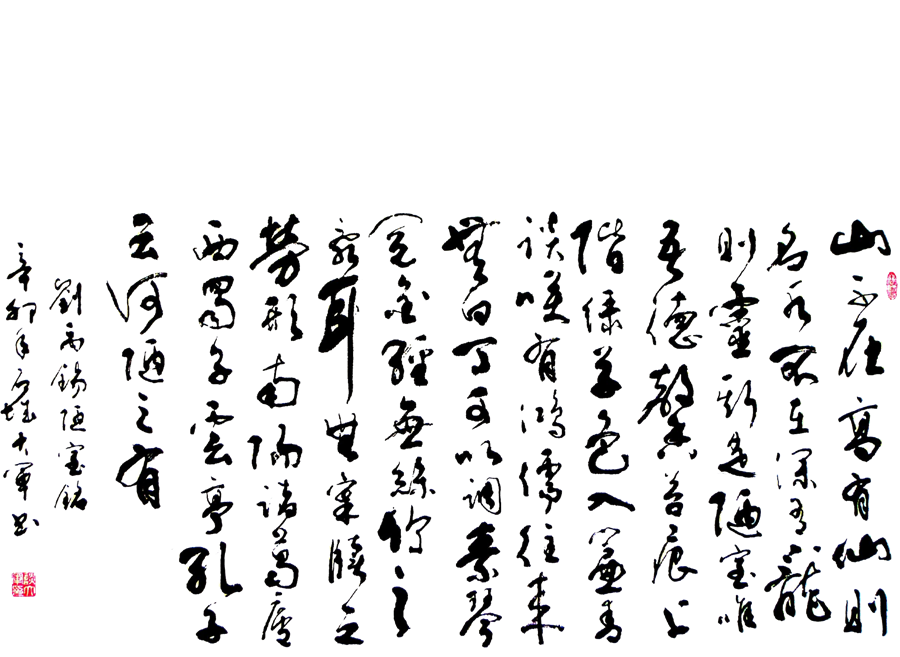 山不在高有仙則
名水不在深有龍
則靈斯是陋室唯
吾德馨苔痕上
階綠草色入簾青
談笑有鴻儒往来
無白丁可以調素琴
閱金經無絲竹之
亂耳無案牘之
勞形南陽諸葛廬
西蜀子雲亭孔子
云何陋之有
劉禹錫陋室銘
辛卯年石城大軍书